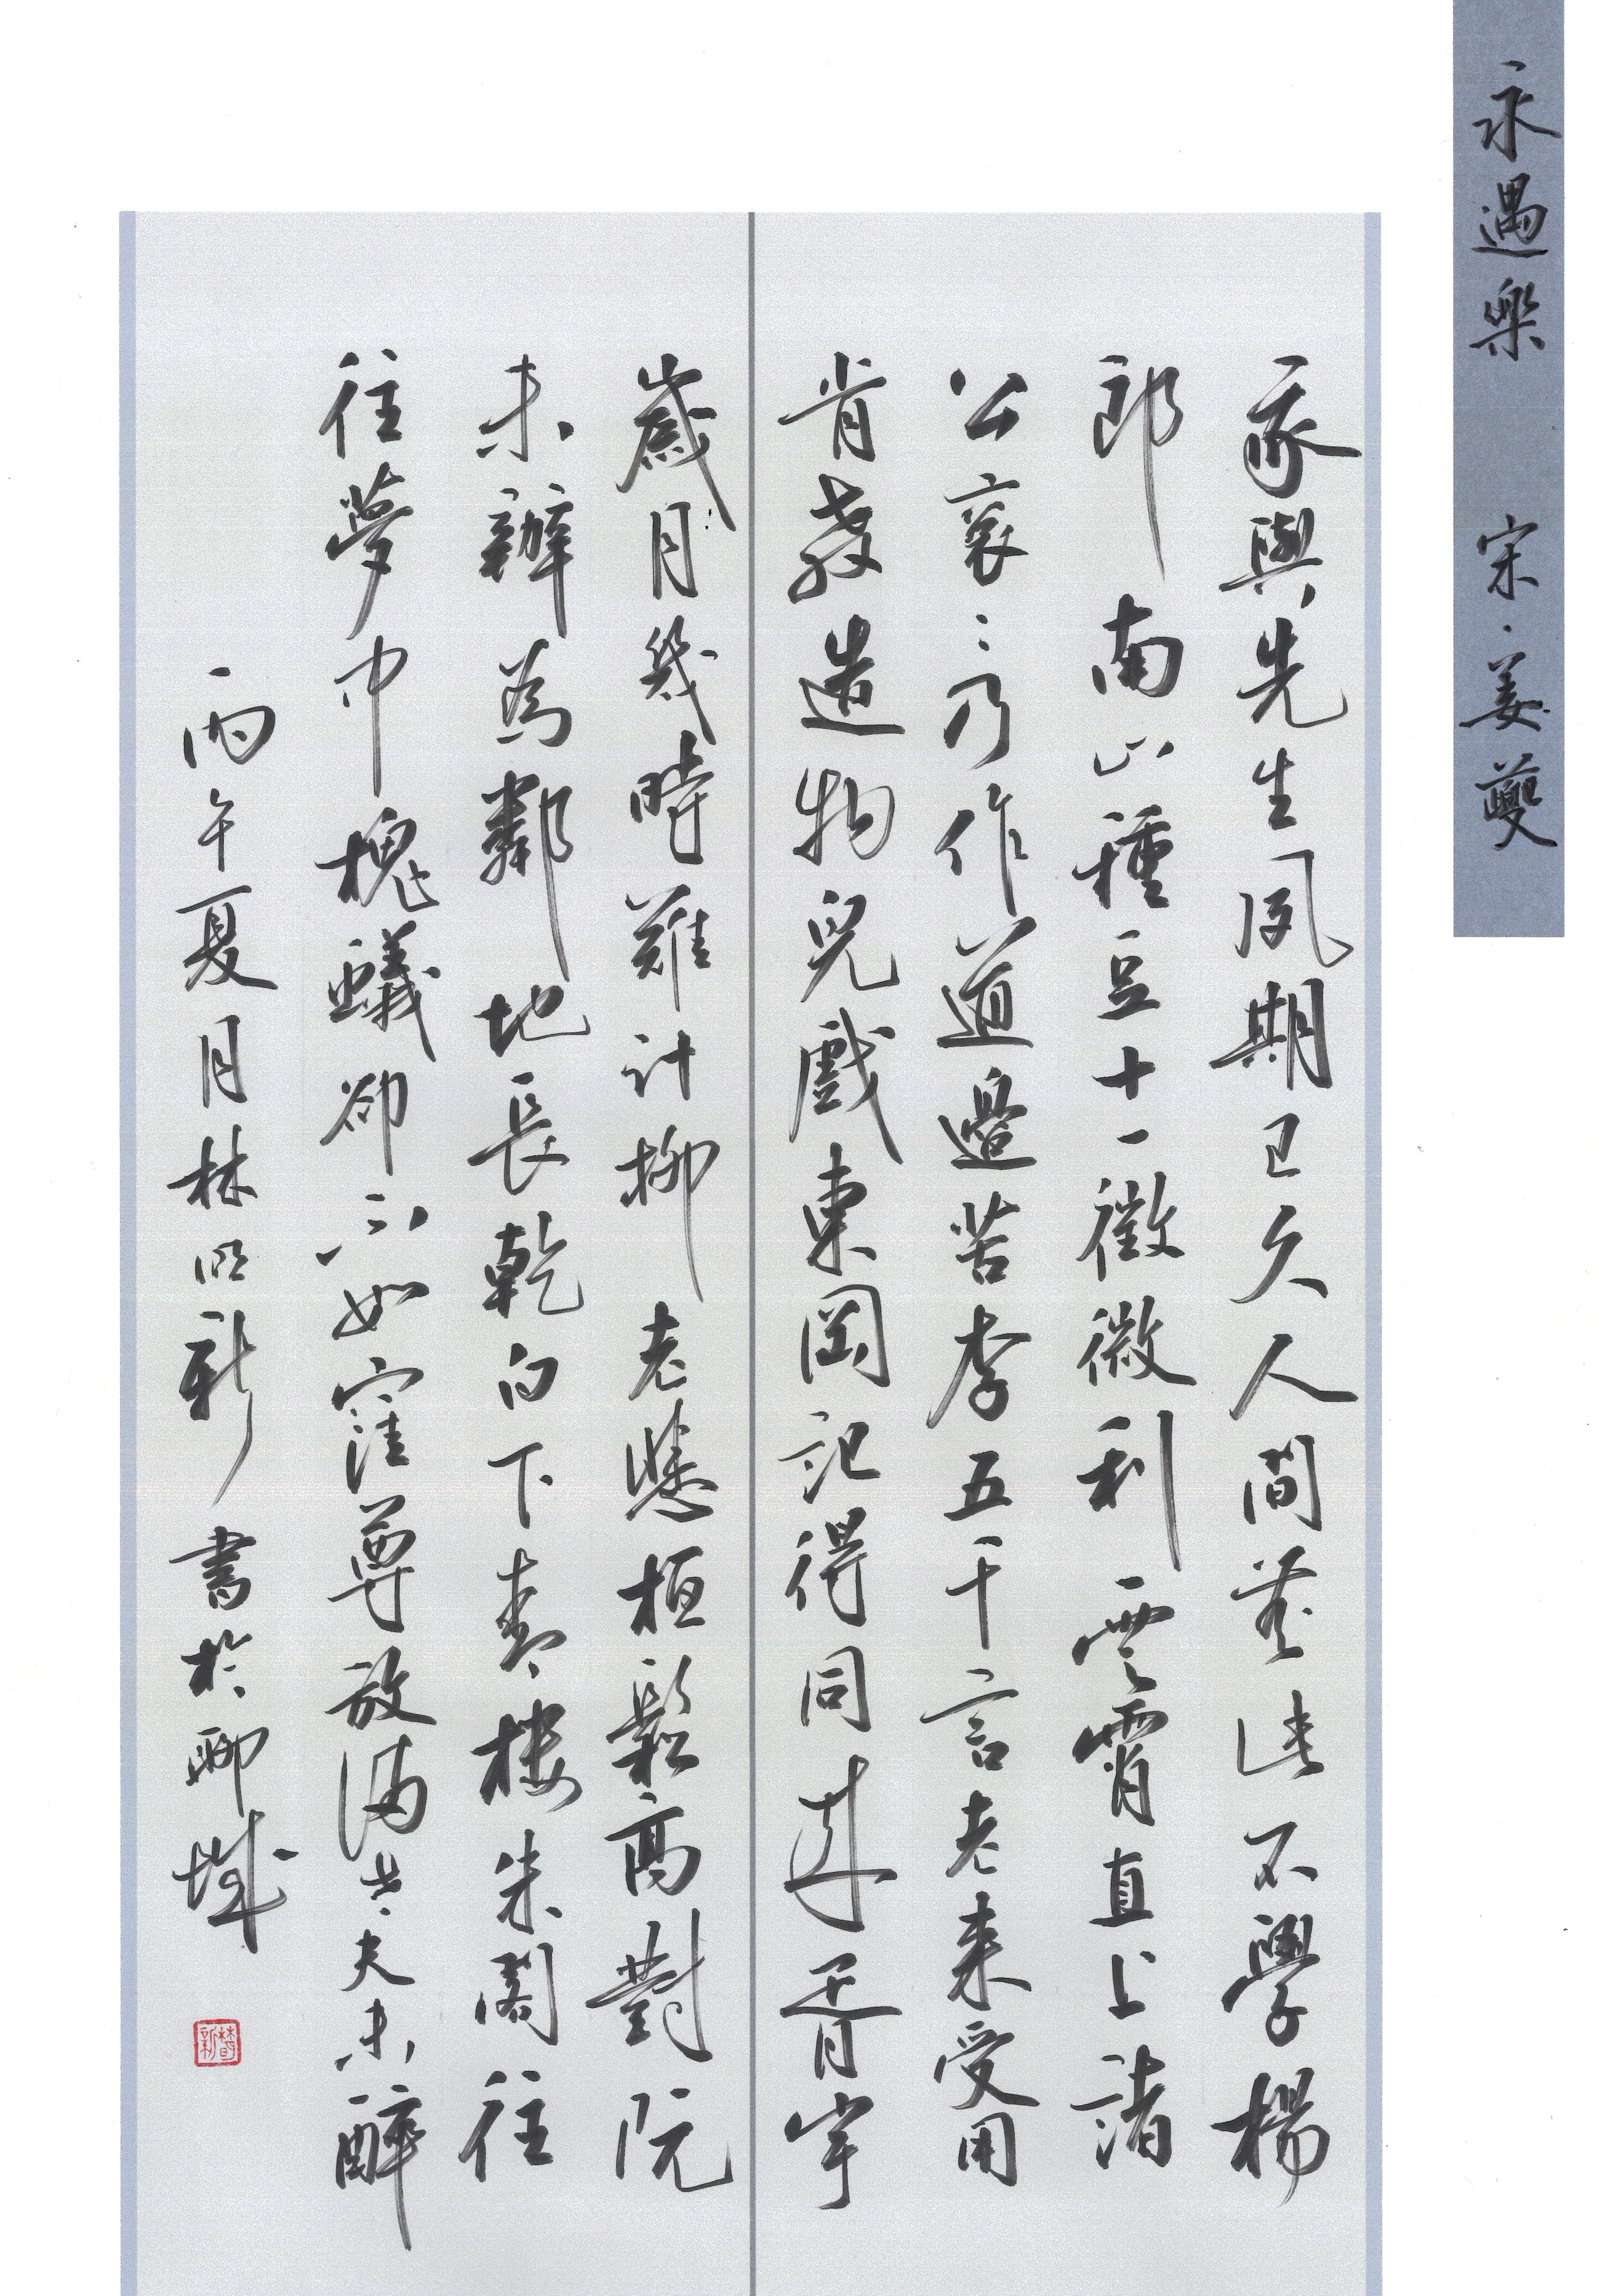 永遇樂 宋·姜夔
我與先生夙期已久人間無此不學楊
郎南山種豆十一徵微利雲霄直上諸
公衮〻乃作道邊苦李五千言老来受用
肯教造物兒戲東岡記得同来胥宇
歲月幾時難計柳老悲桓鬆高對阮
未辦為鄰地長乾白下青樓朱閣往
往夢中槐蟻卻不如窪尊放滿老夫未醉
丙午夏月林明新書於聊城